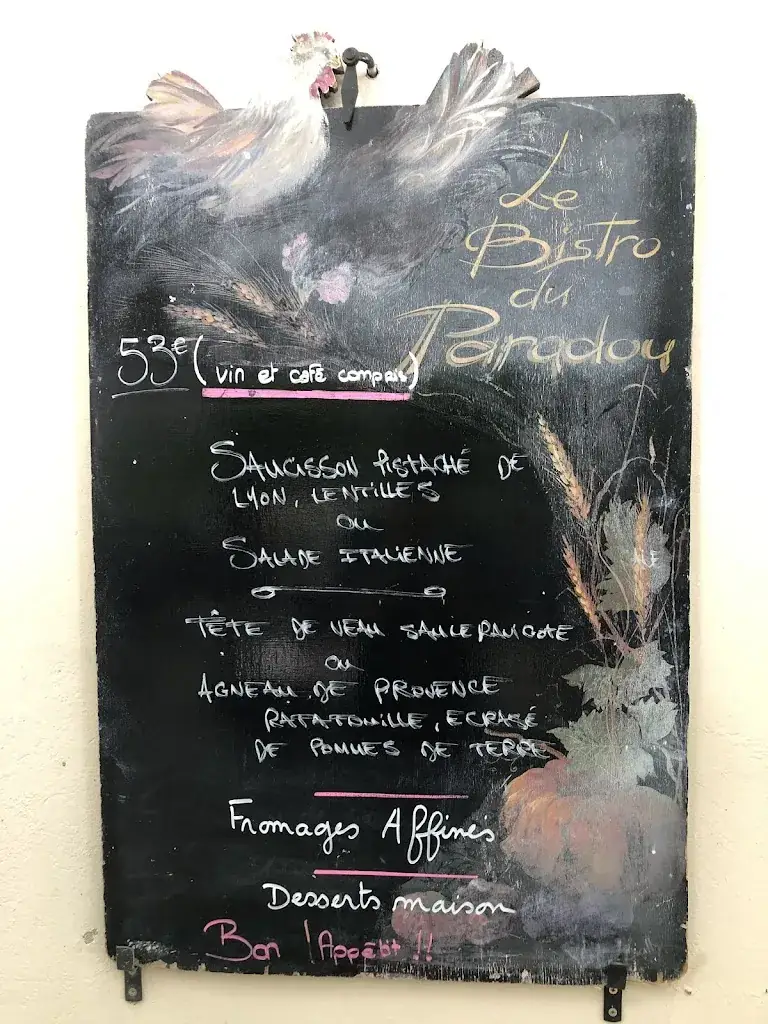 Le
Bistro
du
Paradou
53€ (vin et café compris)
SAUCISSON PISTACHÉ DE
LYON, LENTILLES
OU
SALADE ITALIENNE
TÊTE DE VEAU SAUCE RAVIGOTE
OU
AGNEAU DE PROVENCE
RATATOUILLE, ECRASÉ
DE POMMES DE TERRE
Fromages Affinés
Desserts maison
Bon Appétit !!